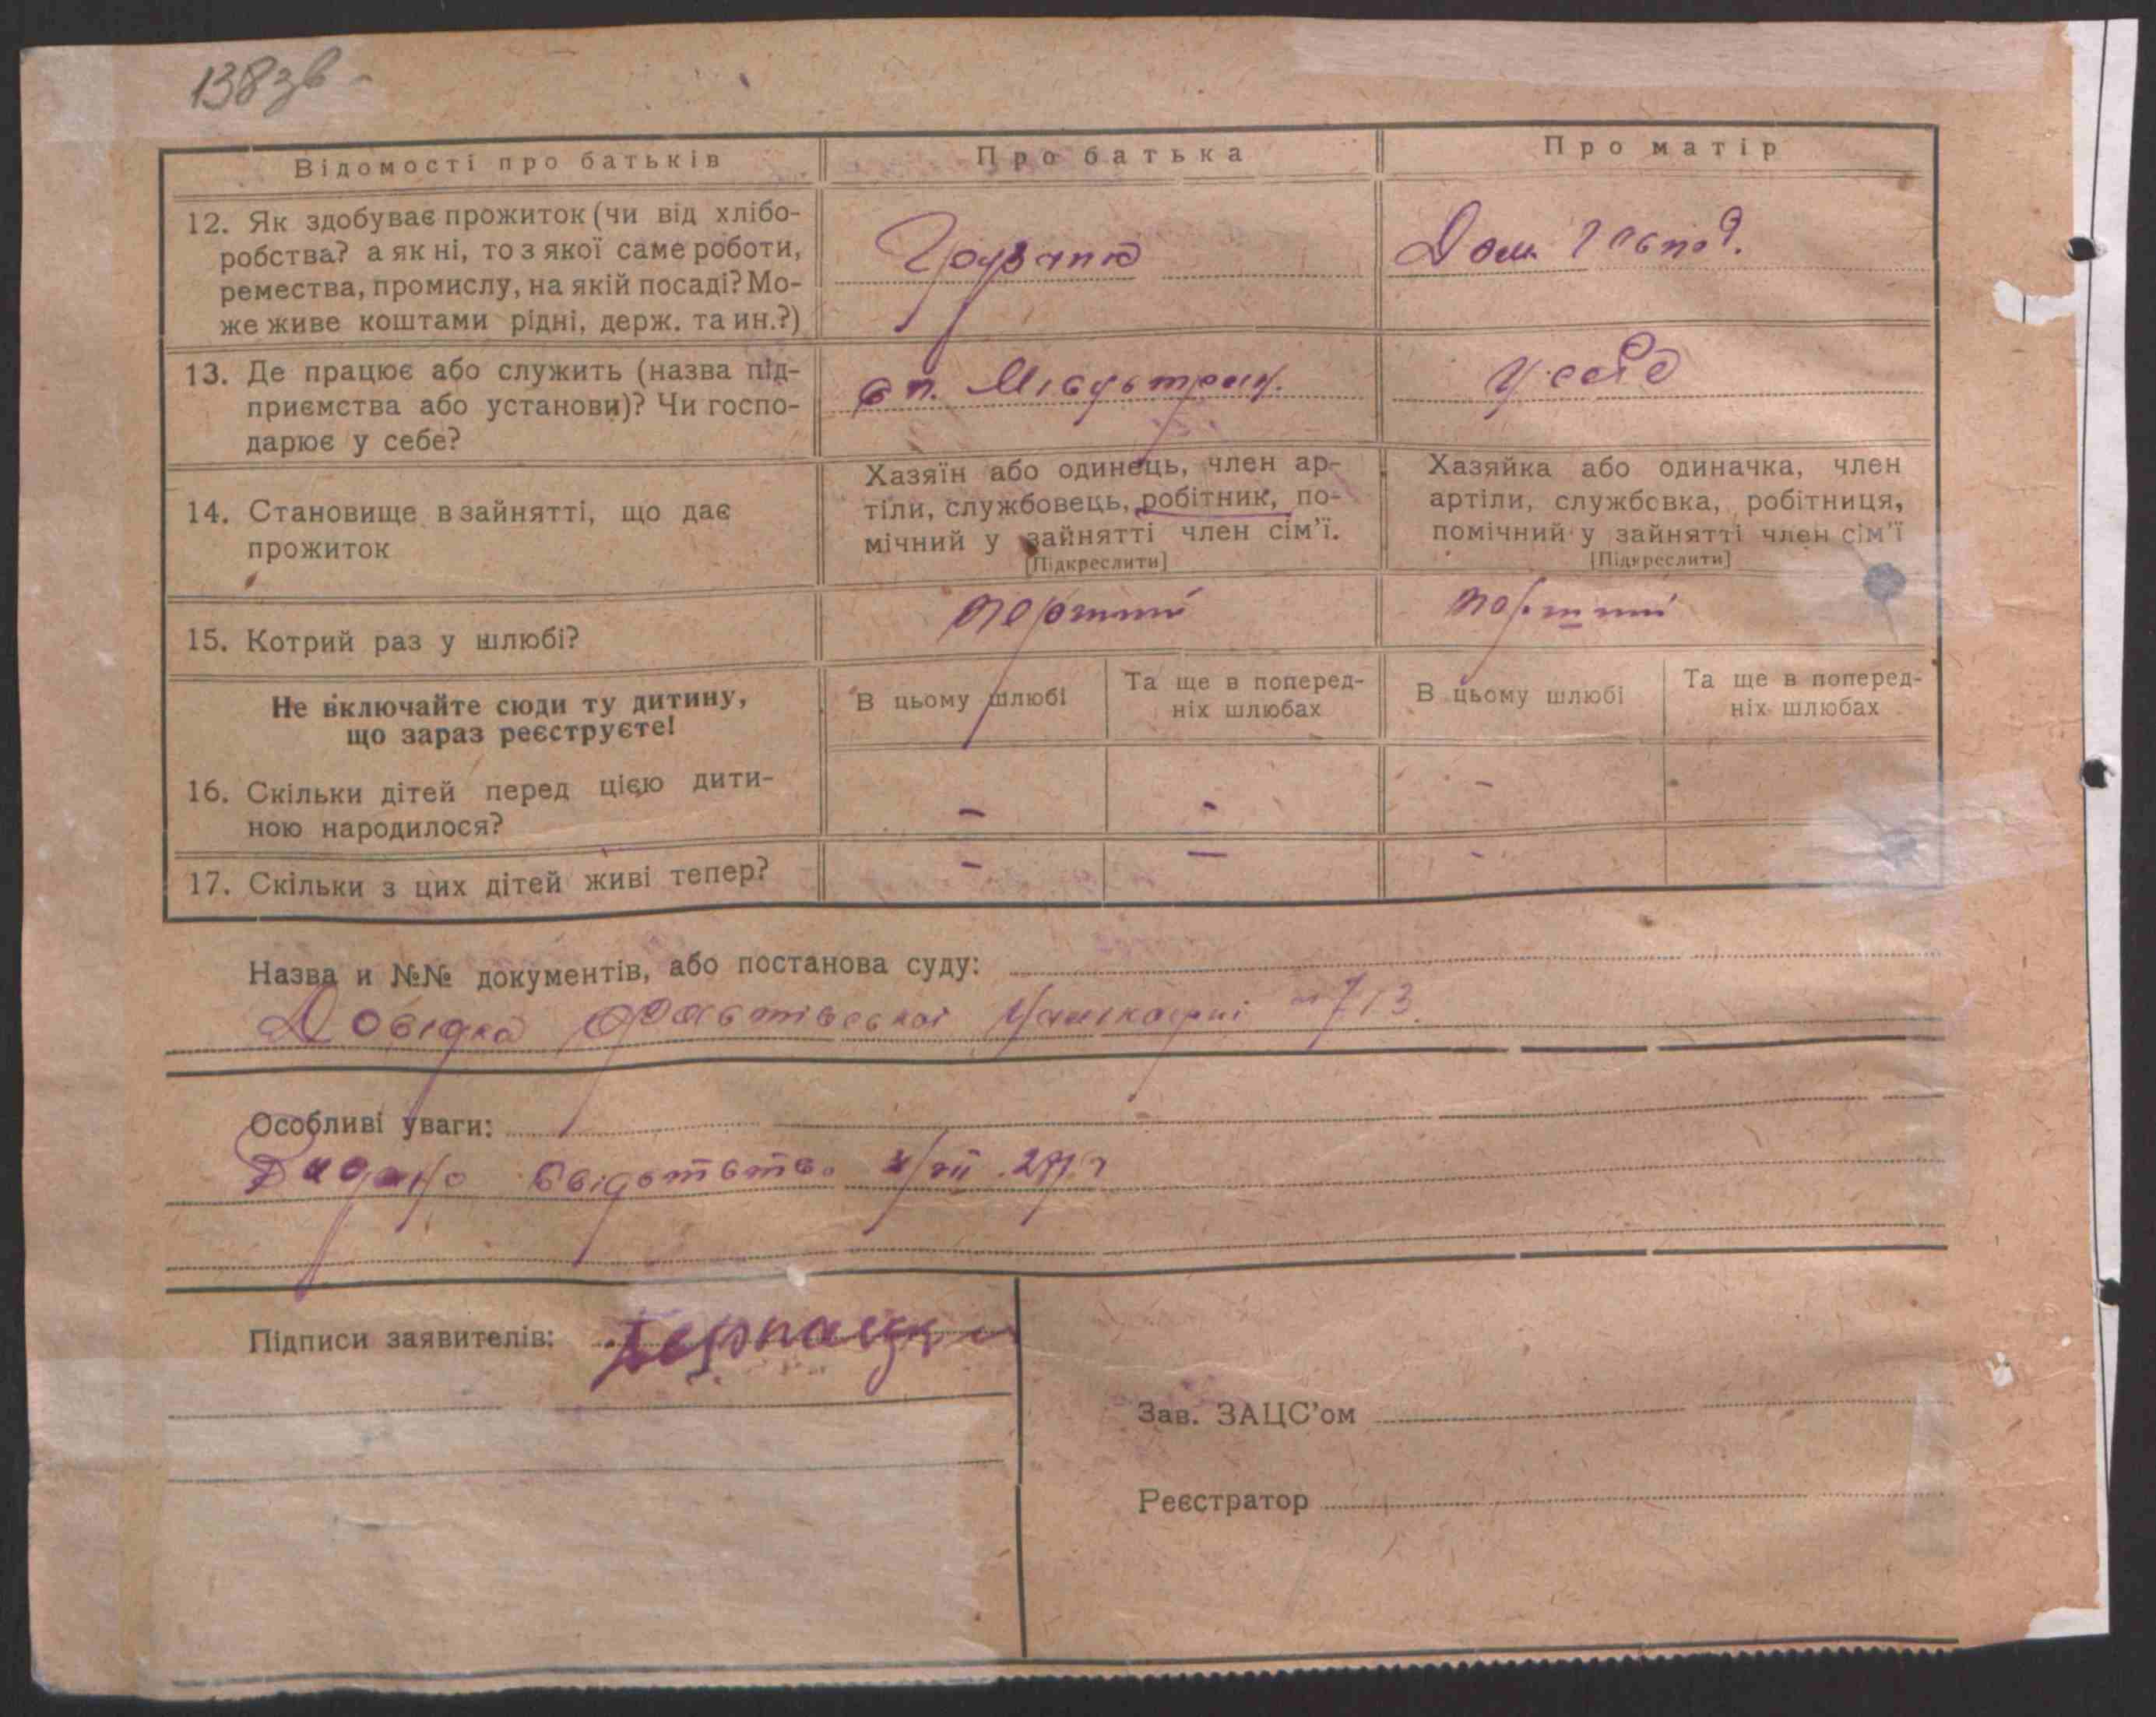 138 зв
Відомості про батьків
Про батька
Про матір
12. Як здобуває прожиток (чи від хлібо-
робства? а як ні, то з якої саме роботи,
ремества, промислу, на якій посаді? Мо-
же живе коштами рідні, держ. та ин.?)
Дом. господ.
13. Де працює або служить (назва під-
приємства або установи)? Чи госпо-
дарює у себе?
У себе
14. Становище в зайнятті, що дає
прожиток
Хазяїн або одинець, член ар-
тіли, службовець, робітник, по-
мічний у зайнятті член сім'ї.
[Підкреслити]
Хазяйка або одиначка, член
артіли, службовка, робітниця,
помічний у зайнятті член сім'ї
[Підкреслити]
15. Котрий раз у шлюбі?
перший
перший
Не включайте сюди ту дитину,
що зараз реєструєте!
В цьому шлюбі
Та ще в поперед-
ніх шлюбах
В цьому шлюбі
Та ще в поперед-
ніх шлюбах
16. Скільки дітей перед цією дити-
ною народилося?
- - -
17. Скільки з цих дітей живі тепер?
- - -
Назва и №№ документів, або постанова суду:
Довідка Фастівської лікарні 713
Особливі уваги:
Видано свідотство
Підписи заявителів:
Зав. ЗАЦС'ом
Реєстратор